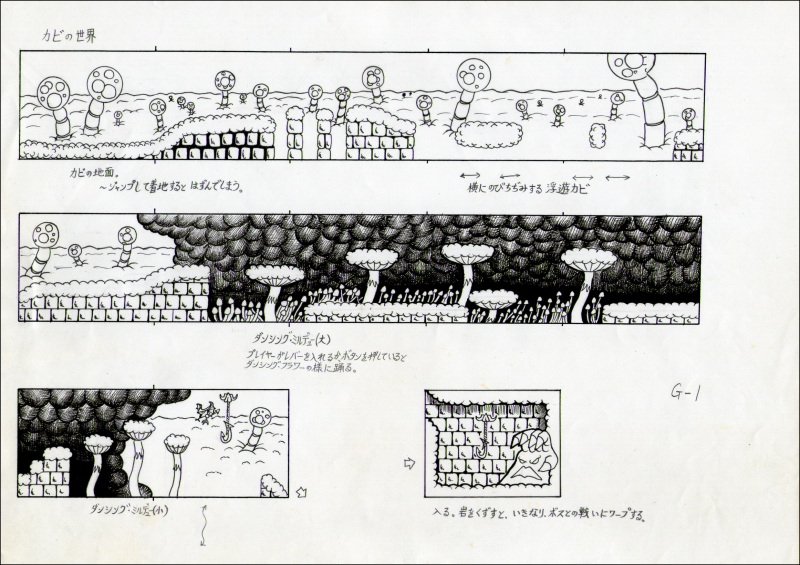 カビの世界
カビの地面。
～ジャンプして着地すると はずんでしまう。
横にのびちぢみする 浮遊カビ
ダンシング・ミルデュ(大)
プレイヤーがレバーを入れるか、ボタンを押していると
ダンシング・フラワーの様に踊る。
G-1
ダンシング・ミルデュ(小)
入る。岩をくずすと、いきなり、ボスとの戦いにワープする。